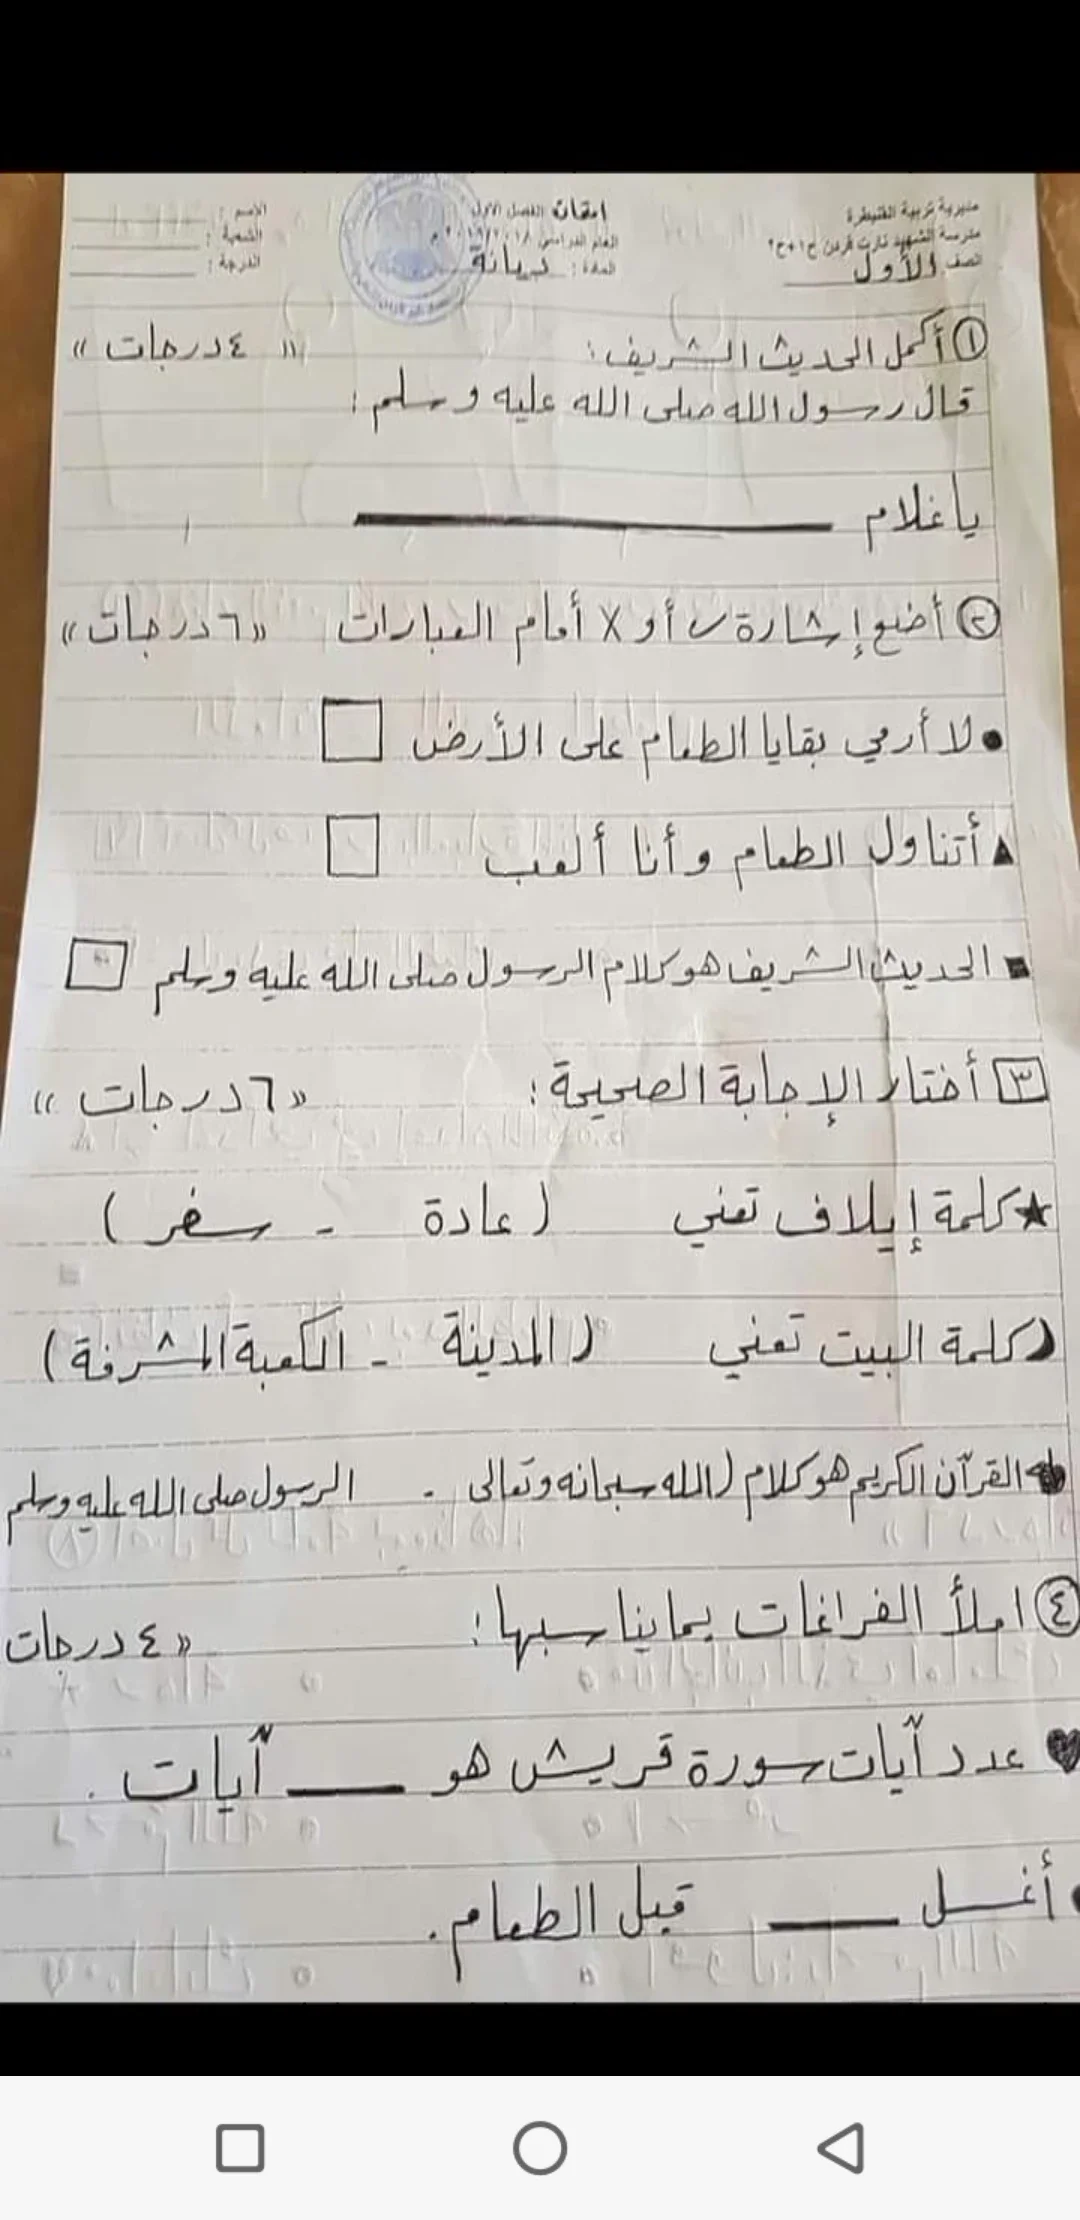 مديرية تربية القنيطرة
مدرسة الشهيد نارت قردن ح١+ح٢
الصف الأول
امتحان الفصل الأول
العام الدراسي ٢٠١٨/٢٠١٩ م
المادة: ديانة
الاسم:
الشعبة:
الدرجة:
١ أكمل الحديث الشريف: « ٤ درجات »
قال رسول الله صلى الله عليه وسلم:
يا غلام ــــــــــ
٢ أضع إشارة ✓ أو X أمام العبارات «٦ درجات»
● لا أرمي بقايا الطعام على الأرض □
▲ أتناول الطعام وأنا ألعب □
■ الحديث الشريف هو كلام الرسول صلى الله عليه وسلم □
٣ أختار الإجابة الصحيحة: «٦ درجات»
★ كلمة إيلاف تعني (عادة - سفر)
كلمة البيت تعني (المدينة - الكعبة المشرفة)
القرآن الكريم هو كلام (الله سبحانه وتعالى - الرسول صلى الله عليه وسلم
٤ املأ الفراغات بما يناسبها: «٤ درجات
♥ عدد آيات سورة قريش هو ــــــ آيات.
● أغسل ــــــ قبل الطعام.